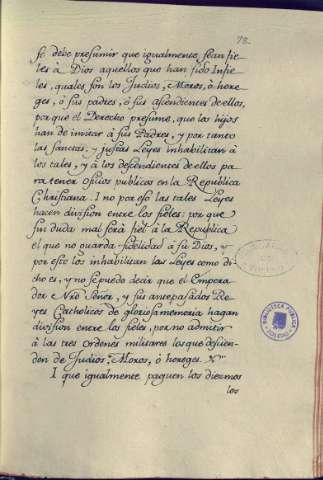 78.
se debe presumir que igualmente sean fie-
les à Dios aquellos que han sido Infie
les, quales son los Judios, Moros, ò here
ges, ò sus padres, ò sus ascendientes de ellos,
porque el Derecho presume, que los hijos
han de imitar à sus Padres, y por tanto
las sanctas, y justas Leyes inhabilitan à
los tales, y à los descendientes de ellos pa
ra tener oficios publicos en la Republica
Christiana. I no por eso las tales Leyes
hacen division entre los fieles: por que
sin duda mal serà fiel à la Republica
el que no guarda fidelidad à su Dios, y
por esto los inhabilitan las Leyes como di
cho es, y no se puedo decir que el Empera
dor Nrô Señor, y sus antepasados Re
yes Catholicos de gloriosa memoria hagan
division entre los fieles, por no admitir
à las tres Ordenes militares los que descien
den de Judios, Moros, ò hereges.
I que igualmente paguen los diezmos
los
BIBLIOTECA PUBLICA
TOLEDO